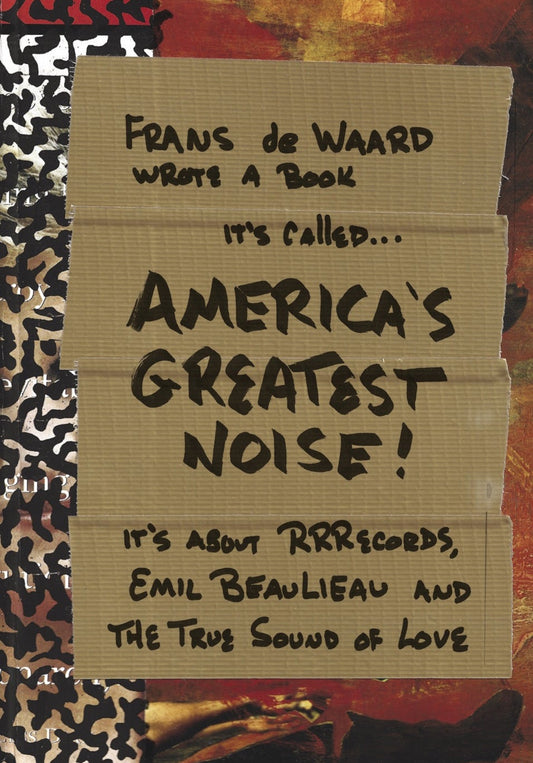 FRANS de WAARD
WROTE A BOOK
IT'S CALLED...
AMERICA'S
GREATEST
NOISE!
IT'S ABOUT RRRECORDS,
EMIL BEAULIEAU AND
THE TRUE SOUND OF LOVE
by
ging